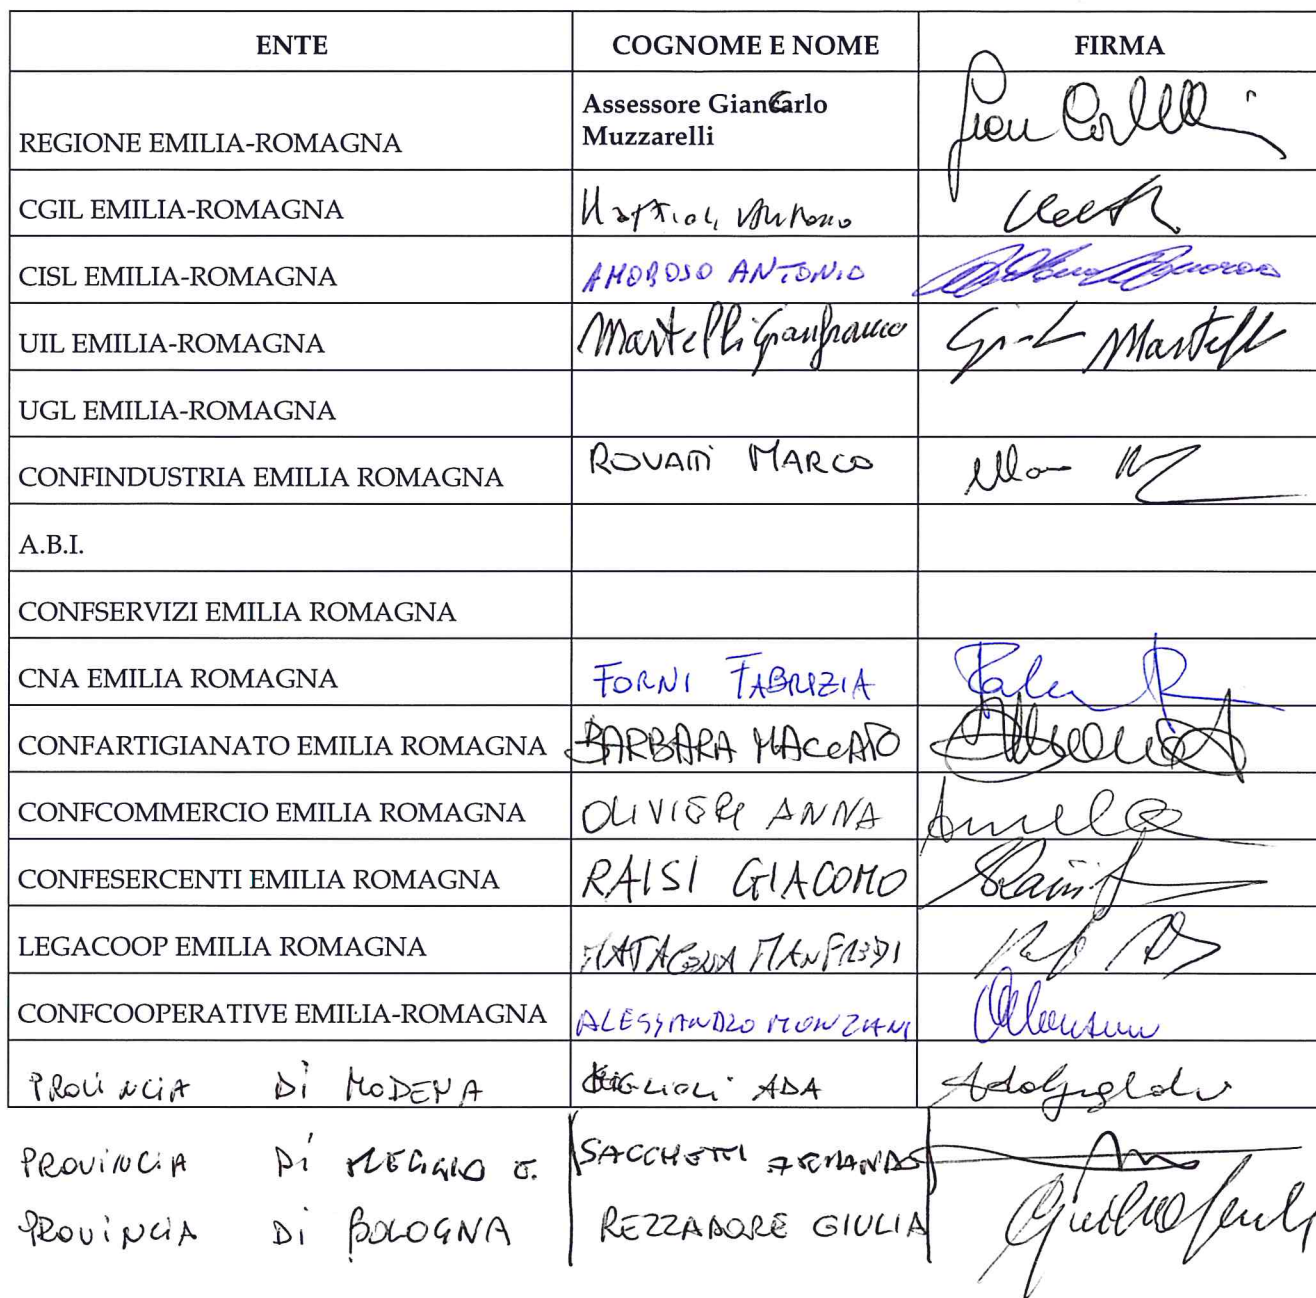 ENTE COGNOME E NOME FIRMA
REGIONE EMILIA-ROMAGNA Assessore Giancarlo
Muzzarelli
CGIL EMILIA-ROMAGNA Mattioli Antonio
CISL EMILIA-ROMAGNA AMOROSO ANTONIO
UIL EMILIA-ROMAGNA Martelli Gianfranco Martelli
UGL EMILIA-ROMAGNA
CONFINDUSTRIA EMILIA ROMAGNA ROVATTI MARCO
A.B.I.
CONFSERVIZI EMILIA ROMAGNA
CNA EMILIA ROMAGNA FORNI FABRIZIA
CONFARTIGIANATO EMILIA ROMAGNA BARBARA MACCATO
CONFCOMMERCIO EMILIA ROMAGNA OLIVIERI ANNA
CONFESERCENTI EMILIA ROMAGNA RAISI GIACOMO
LEGACOOP EMILIA ROMAGNA MATACENA MANFREDI
CONFCOOPERATIVE EMILIA-ROMAGNA ALESSANDRO MONZIANI
PROVINCIA Di MODENA ADA
PROVINCIA Di REGGIO E. SACCHETTI ARMANDO
PROVINCIA Di BOLOGNA REZZADORE GIULIA